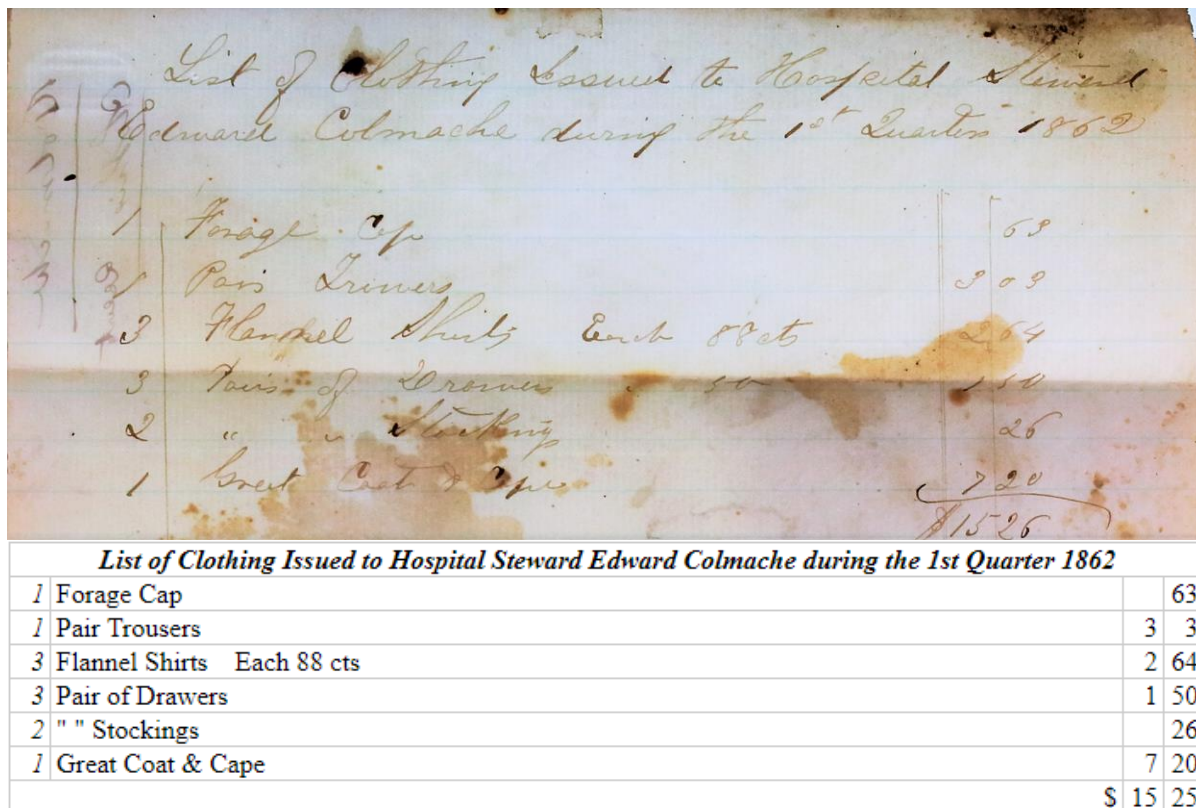 List of Clothing Issued to Hospital Steward
Edward Colmache during the 1st Quarter 1862
1 Forage Cap 63
1 Pair Trowsers 3 03
3 Flannel Shirts Each 88 cts 2 64
3 Pairs of Drawers " 50 1 50
2 " " Stockings 26
1 Great Coat & Cape 7 20
$15 26
List of Clothing Issued to Hospital Steward Edward Colmache during the 1st Quarter 1862
1 Forage Cap 63
1 Pair Trousers 3 3
3 Flannel Shirts Each 88 cts 2 64
3 Pair of Drawers 1 50
2 " " Stockings 26
1 Great Coat & Cape 7 20
$ 15 25